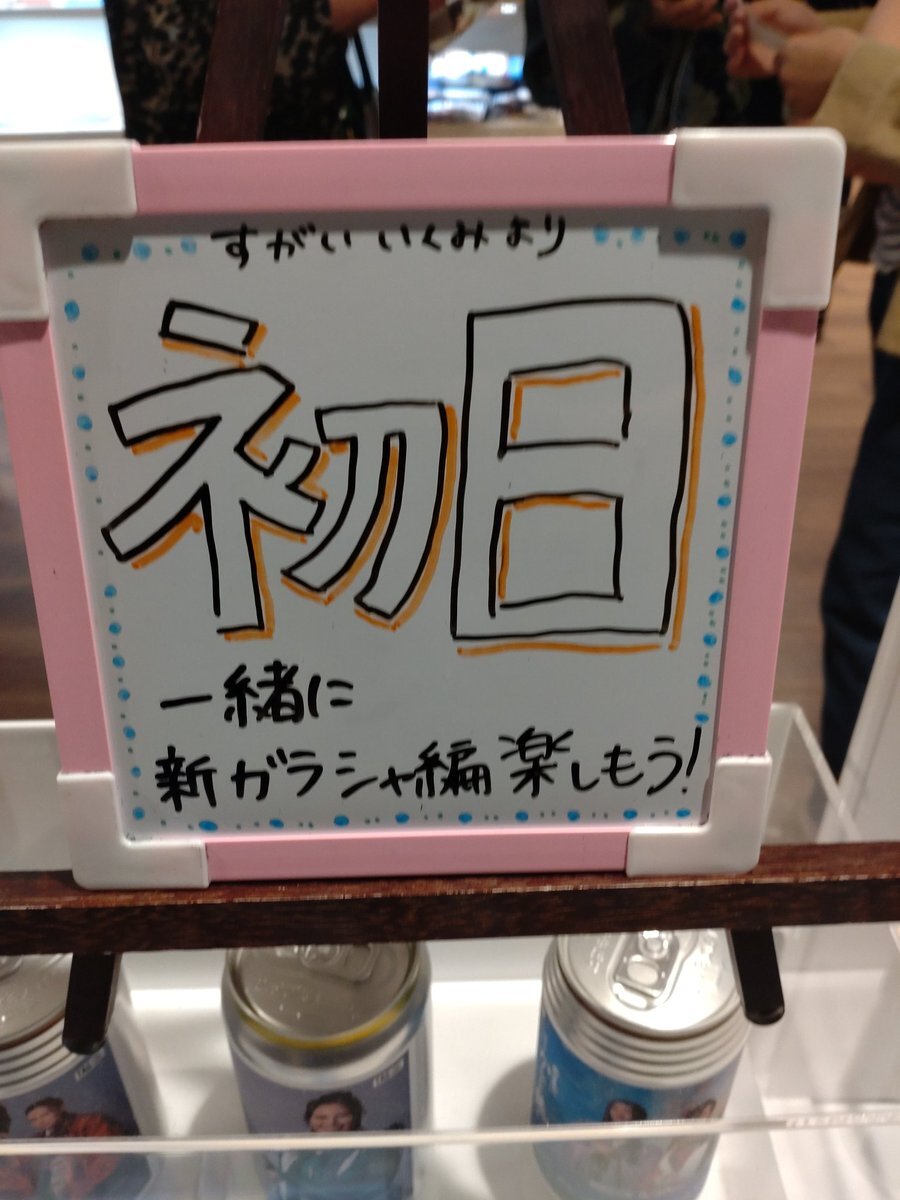 すがい いくみより
初日
一緒に
新ガラシャ編楽しもう!